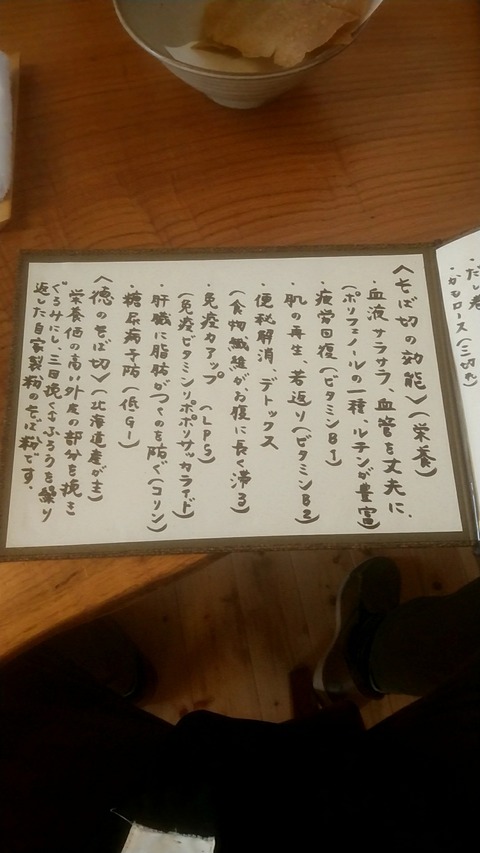 ・だし巻
・かもロース(三切れ)
〈そば切の効能〉(栄養)
・血液サラサラ、血管を丈夫に、
(ポリフェノールの一種、ルテンが豊富)
・疲労回復(ビタミンB1)
・肌の再生、若返り(ビタミンB2)
・便秘解消、デトックス
(食物繊維がお腹に長く滞る)
・免疫力アップ(LPS)
(免疫ビタミンリポポリサッカライド)
・肝臓に脂肪がつくのを防ぐ(コリン)
・糖尿病予防(低GI)
〈徳のそば切〉(北海道産が主)
栄養価の高い外皮の部分を挽き
ぐるみにし、三回挽くふるうを繰り
返した自家製粉のそば粉です。